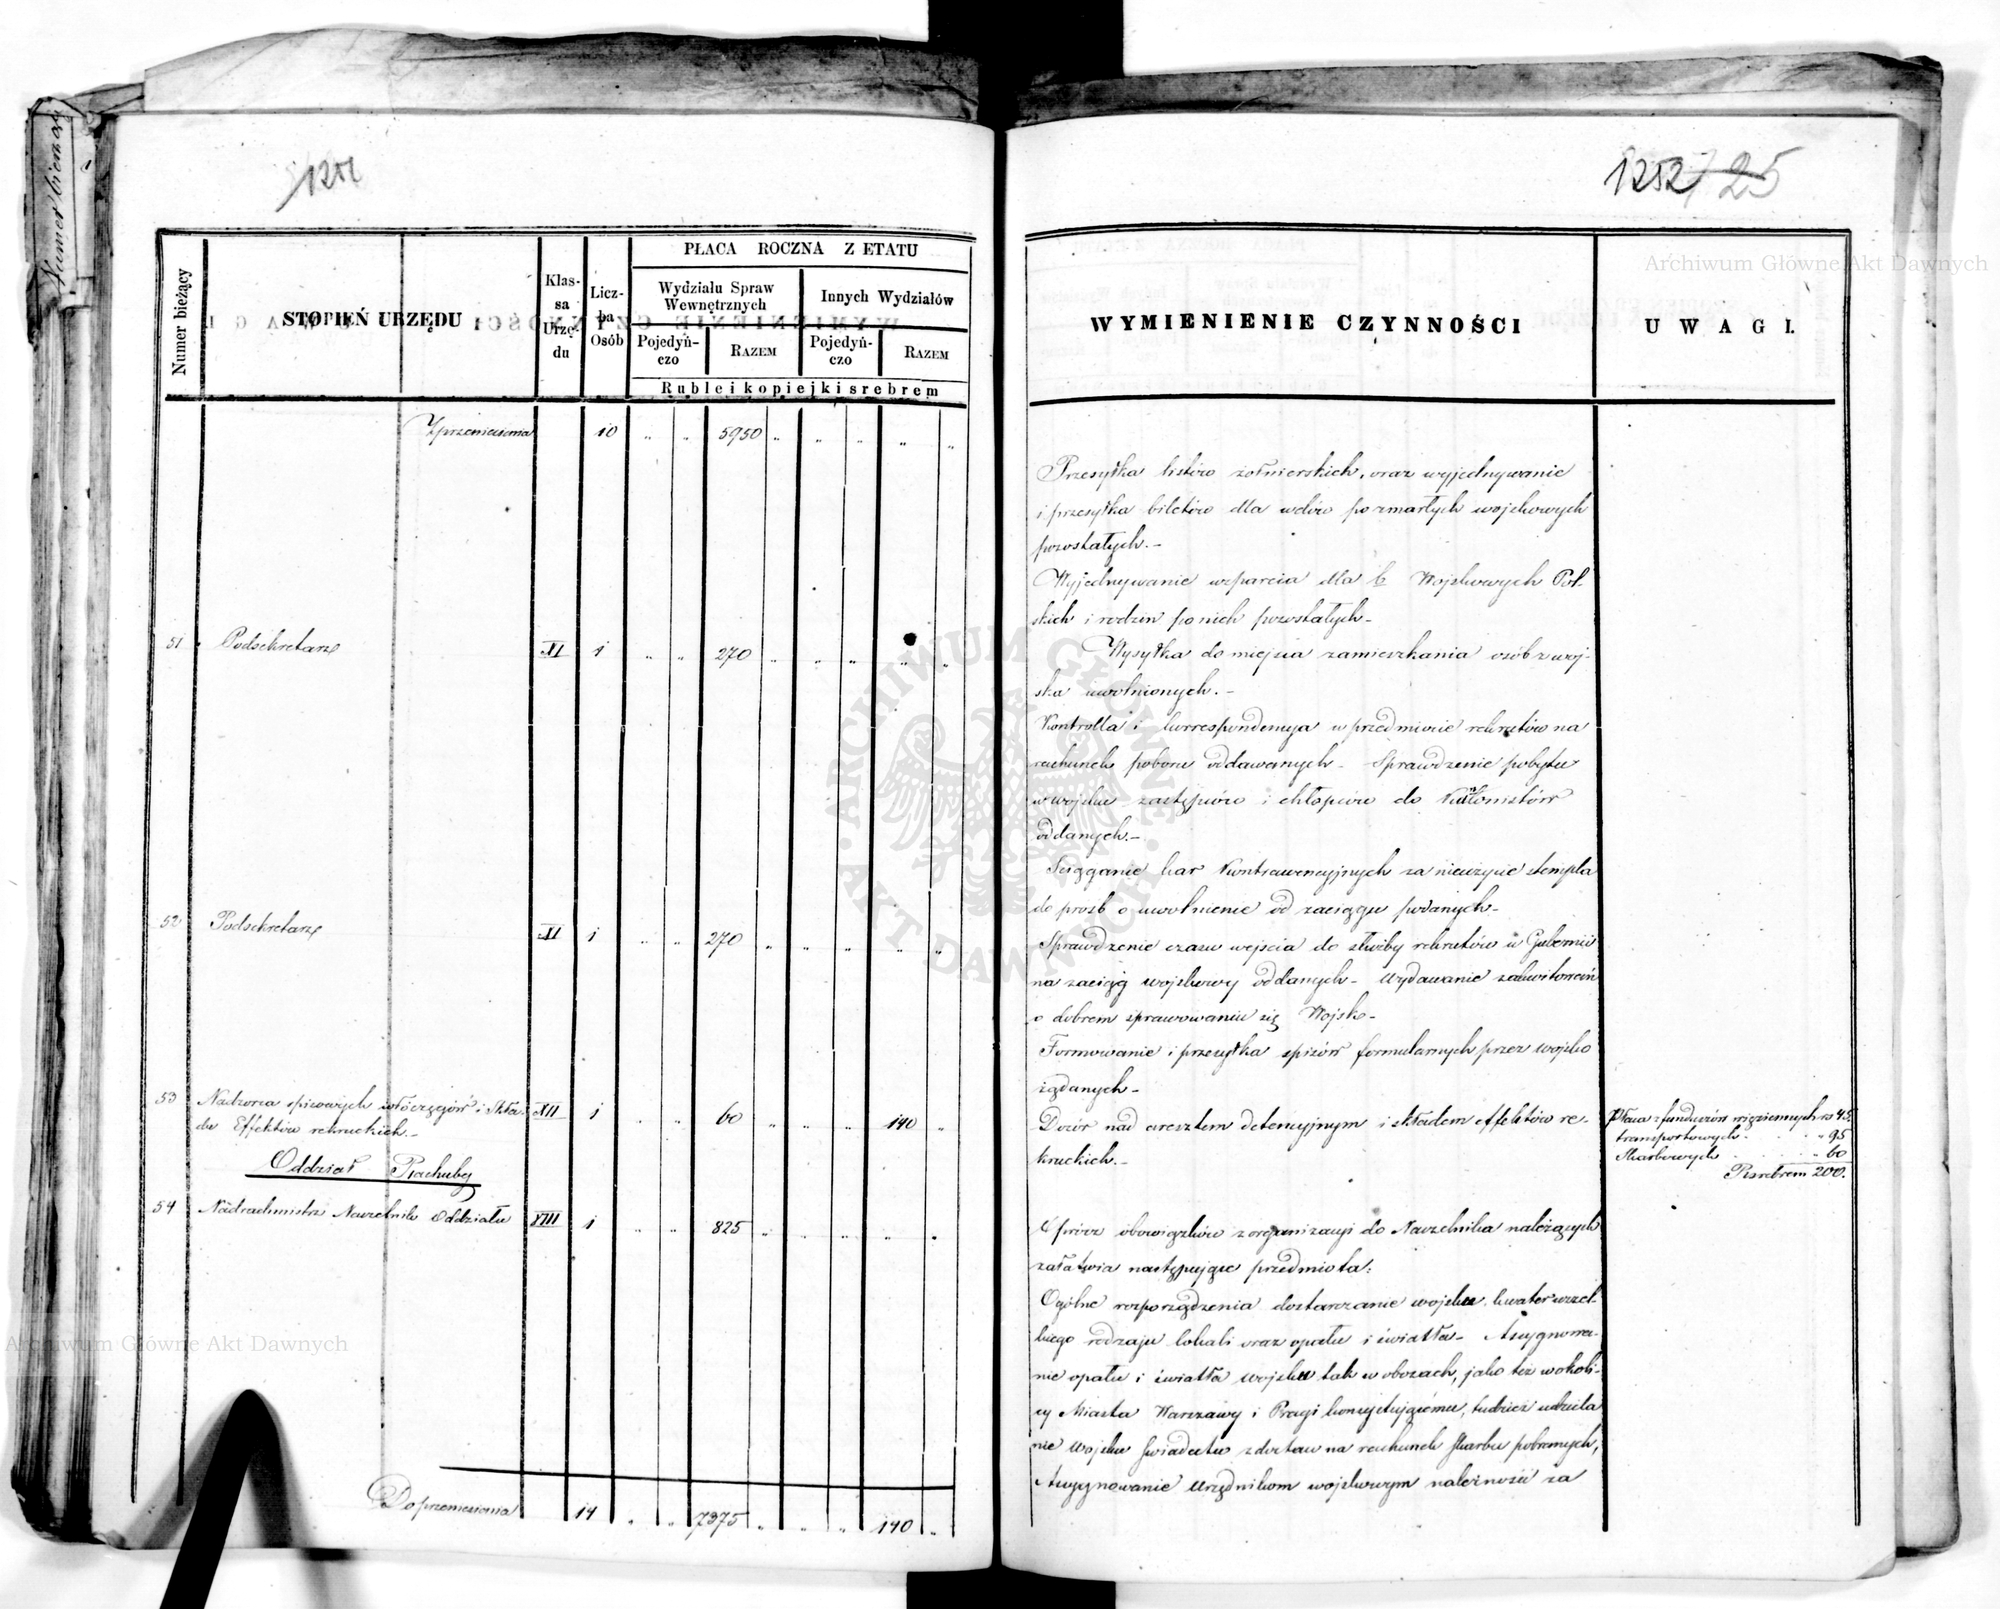 Numer bieżący
1251
1252
25
PŁACA ROCZNA Z ETATU
Numer bieżący
STOPIEŃ URZĘDU
Klas-
sa
Urzę-
du
Licz-
ba
Osób
Wydziału Spraw
Wewnętrznych
Innych Wydziałów
Pojedyń-
czo
RAZEM
Pojedyń-
czo
RAZEM
Ruble i kopiejki srebrem
Z przeniesienia 10 " " 5950 " " " " "
51 Podsekretarz XI 1 " " 270 " " " " "
52 Podsekretarz XI 1 " " 270 " " " " "
53 Nadzorca spisowych włóczęgów i Skła- XII 1 " " 60 " " " 140 "
du Effektów rekruckich.-
Oddział Rachuby
54 Nadrachmistrz Naczelnik Oddziału VIII 1 " " 825 " " " " "
Do przeniesienia 14 " " 7375 " " " 140 "
WYMIENIENIE CZYNNOŚCI
UWAGI.
Przesyłka listów żołnierskich, oraz wyjednywanie
i przesyłka biletów dla wdów po zmarłych wojskowych
pozostałych.-
Wyjednywanie wsparcia dla b Wojskowych Pol-
skich i rodzin po nich pozostałych-
Wysyłka do miejsca zamieszkania osób z woj-
ska uwolnionych.-
Kontrolla i korrespondencya w przedmiocie rekrutów na
rachunek poboru oddawanych- Sprawdzenie pobytu
w wojsku zastępców i chłopców do Kantonistów
oddanych.-
Ściąganie kar Kontrawencyjnych za nieużycie stempla
do prozb o uwolnienie od zaciągu podanych-
Sprawdzenie czasu wejścia do służby rekrutów w Gubernii
na zaciąg wojskowy oddanych- Wydawanie zakwitowań
o dobrem sprawowaniu się Wojsk-
Formowanie i przesyłka spisów formularnych przez wojsko
żądanych-
Dozór nad aresztem detencyjnym i składem effektów re-
kruckich.-
Płaca z funduszów więziennych rs 45.
transportowych " 95
Skarbowych " 60
Rs srebrem 200.
Oprócz obowiązków z organizacyi do Naczelnika należących
załatwia następujące przedmiota:
Ogólne rozporządzenia dostarczanie wojsku kwater wszel-
kiego rodzaju lokali oraz opału i światła- Assygnowa-
nie opału i światła wojsku tak w obozach, jako też w okoli-
cy Miasta Warszawy i Pragi konsystującemu, tudzież udziela
nie Wojsku świadectw z dostaw na rachunek Skarbu pobranych,
Assygnowanie Urzędnikom wojskowym należności za
Archiwum Główne Akt Dawnych
Archiwum Główne Akt Dawnych
ARCHIWUM GŁÓWNE AKT DAWNYCH